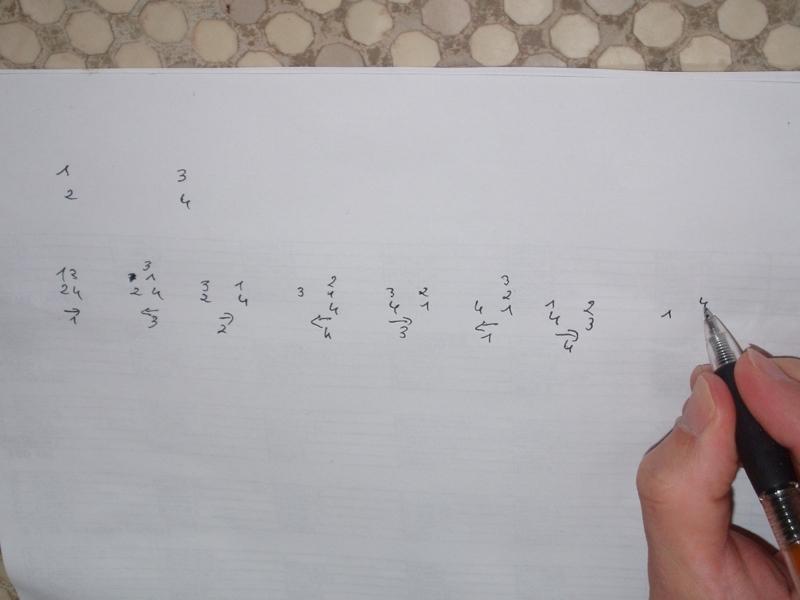 1 3
2 4
3 2 3
13 1 3 1 3 1 3 2 2 1 2 4
24 2 4 2 4 4 4 1 4 1 4 3 1
→ ← → ← → ← →
1 3 2 4 3 1 4